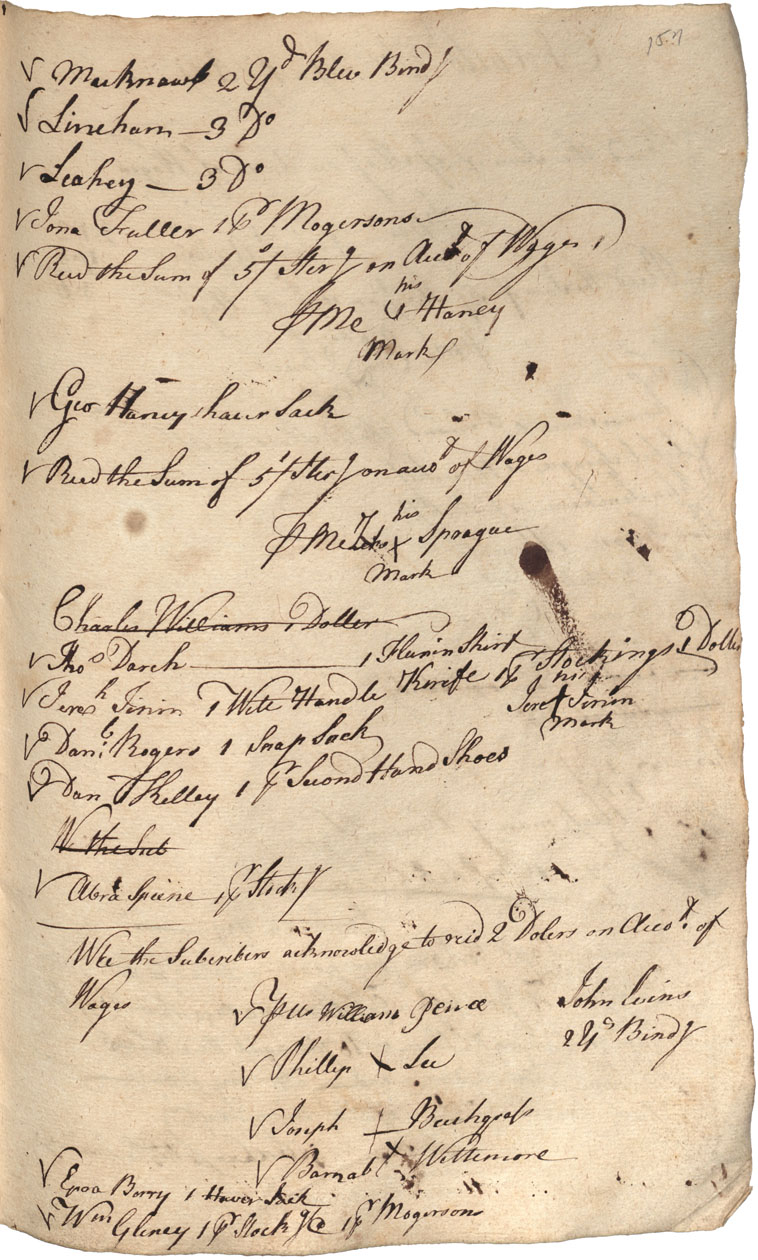 157
√ Macknawl 2 Yd Blew Bindg
√ Lineham — 3 Do
√ Leahey — 3 Do
√ Jona Fuller 1 pr Mogersons
√ Recd the Sum of 5/ Sterg on Acct of Wages
his
⅌ Me Haney
Mark
√ Geo Haney haversack
√ Recd the Sum of 5/ Sterg on accot of Wages
his
⅌ Me X Sprague
Mark
Charles Williams 1 Doller
√ Thos Darch — 1 Flanin Shirt
√ Jereh Finin 1 Wite Handle Knife 1 pr Stockings 1 Doller
his
Jere X Finin
Mark
√ Danl Rogers 1 Snap Sack
√ Dan Kelley 1 pr Second Hand Shoes
We the Sub
√ Abra Speene 1 pr Stockg
Wee the Subcribers acknowledge to recd 2 Dolers on Accot. of
Wages
√ William Peirce
John Evins
2 Yds Bindg
√ Phillip X Lee
√ Joseph X Beethgrass
√ Barnabe X Wittemore
√ Berry 1 Haver Sack
√ Wm Gleney 1 pr Stockgs 1 pr Mogersons